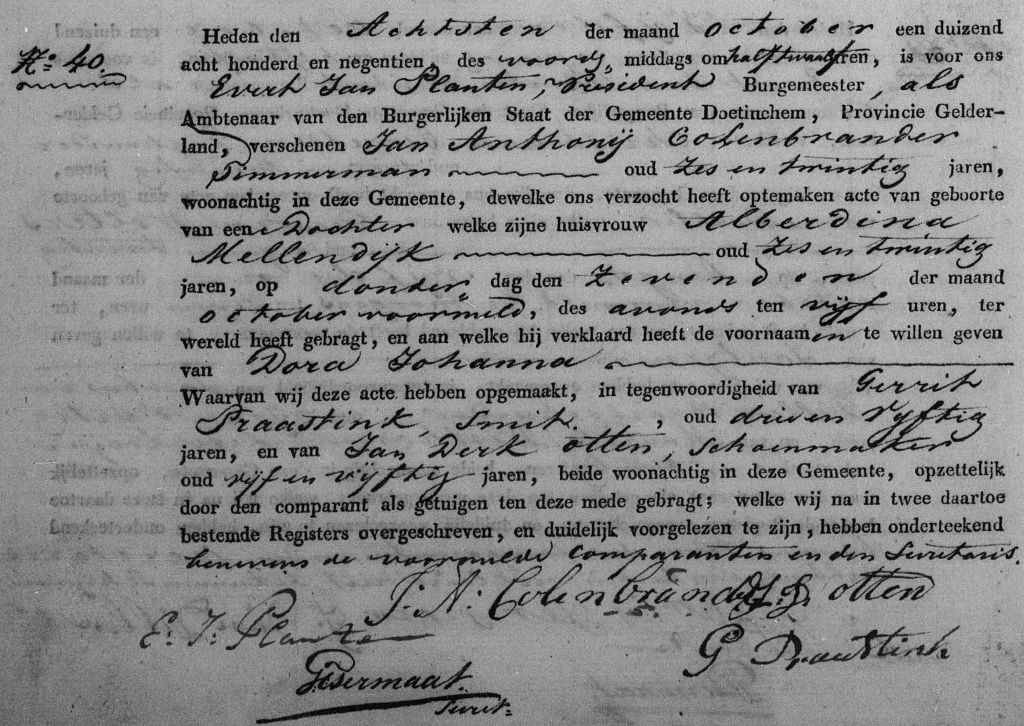 No. 40.
Heden den Achtsten der maand October een duizend
acht honderd en negentien, des voord,, middags om half twaalf uren, is voor ons
Evert Jan Planten, President Burgemeester, als
Ambtenaar van den Burgerlijken Staat der Gemeente Doetinchem, Provincie Gelder-
land, verschenen Jan Anthonij Colenbrander
Timmerman oud Zes en twintig jaren,
woonachtig in deze Gemeente, dewelke ons verzocht heeft optemaken acte van geboorte
van eene Dochter welke zijne huisvrouw Alberdina
Mellendijk oud Zes en twintig
jaren, op donder,, dag den Zevenden der maand
October voormeld, des avonds ten vijf uren, ter
wereld heeft gebragt, en aan welke hij verklaard heeft de voornaamen te willen geven
van Dora Johanna
Waarvan wij deze acte hebben opgemaakt, in tegenwoordigheid van Gerrit
Praastink, Smit, oud drie en Vijftig
jaren, en van Jan Derk Otten, Schoenmaker
oud vijf en vijftig jaren, beide woonachtig in deze Gemeente, opzettelijk
door den comparant als getuigen ten deze mede gebragt; welke wij na in twee daartoe
bestemde Registers overgeschreven, en duidelijk voorgelezen te zijn, hebben onderteekend
benevens de voormelde Comparanten en den Secretaris.
J: A: Colenbrander otten
E: J: Planten
G Praastink
Secret: